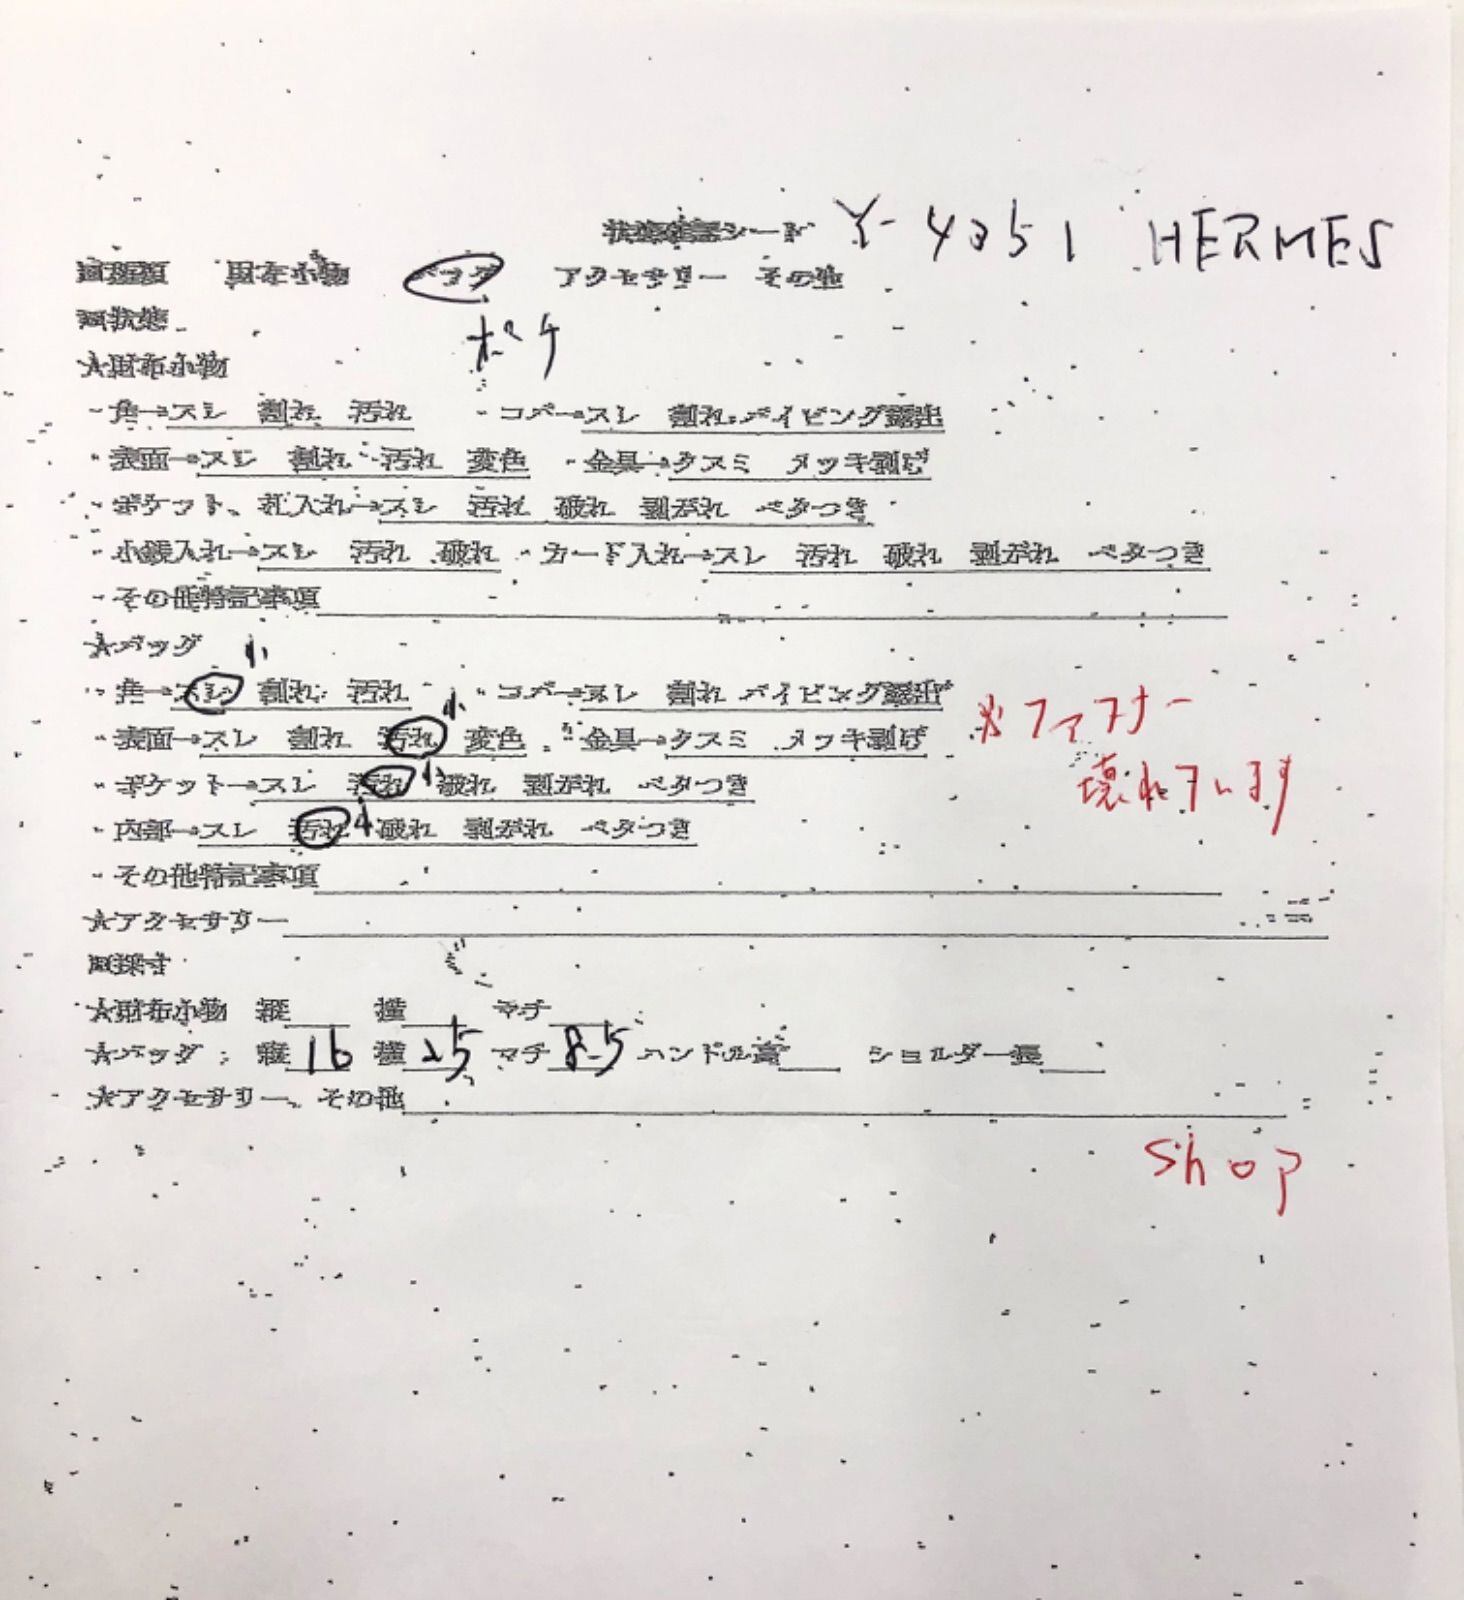 状態確認シート Y-4051 HERMES
■種類 財布小物 バッグ アクセサリー その他
ポーチ
■状態
★財布小物
・角→スレ 割れ 汚れ ・コバ→スレ 割れ パイピング露出
・表面→スレ 割れ 汚れ 変色 ・金具→クスミ メッキ剥げ
・ポケット、札入れ→スレ 汚れ 破れ 剥がれ ベタつき
・小銭入れ→スレ 汚れ 破れ ・カード入れ→スレ 汚れ 破れ 剥がれ ベタつき
・その他特記事項
★バッグ
・角→スレ 小 割れ 汚れ ・コバ→スレ 割れ パイピング露出
・表面→スレ 割れ 汚れ 小 変色 ・金具→クスミ メッキ剥げ
※ファスナー
・ポケット→スレ 汚れ 小 破れ 剥がれ ベタつき
壊れています
・内部→スレ 汚れ 小 破れ 剥がれ ベタつき
・その他特記事項
★アクセサリー
■採寸
★財布小物 縦 横 マチ
★バッグ 縦 16 横 25 マチ 8.5 ハンドル高 ショルダー長
★アクセサリー、その他
shop